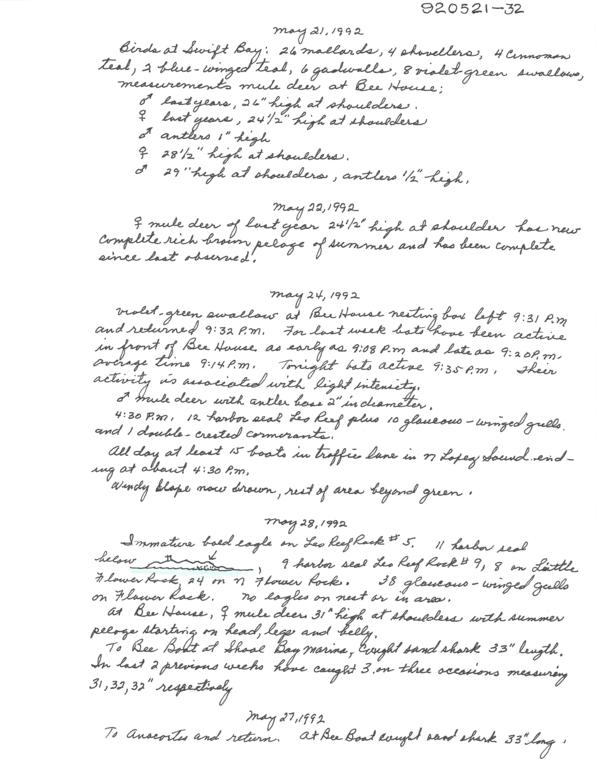 920521-32
May 21, 1992
Birds at Swift Bay: 26 mallards, 4 shovellers, 4 Cinnoman
teal, 2 blue-winged teal, 6 gadwalls, 8 violet-green swallows,
measurements mule deer at Bee House:
♂ last years, 26" high at shoulders.
♀ last years, 24 1/2" high at shoulders
♂ antlers 1" high
♀ 28 1/2" high at shoulders.
♂ 29" high at shoulders, antlers 1/2" high.
May 22, 1992
♀ mule deer of last year 24 1/2" high at shoulder has new
complete rich brown pelage of summer and has been complete
since last observed.
May 24, 1992
violet-green swallow at Bee House nesting box left 9:31 P.M
and returned 9:32 P.M. For last week bats have been active
in front of Bee House as early as 9:08 P.M and late as 9:20 P.M.
average time 9:14 P.M. Tonight bats active 9:35 P.M. Their
activity is associated with light intensity.
♂ mule deer with antler base 2" in diameter.
4:30 P.M. 12 harbor seal Leo Reef plus 10 glaucous-winged gulls
and 1 double-crested cormorants.
All day at least 15 boats in traffic lane in N Lopez Sound end-
ing at about 4:30 P.M.
Windy slope now brown, rest of area beyond green.
May 28, 1992
Immature bald eagle on Leo Reef Rock # 5. 11 harbor seal
below , 9 harbor seal Leo Reef Rock # 9, 8 on Little
Flower Rock, 24 on N Flower Rock. 38 glaucous-winged gulls
on Flower Rock. No eagles on nest or in area.
At Bee House, ♀ mule deer 31" high at shoulders with summer
pelage starting on head, legs and belly.
To Bee Boat at Shoal Bay Marina, Caught sand shark 33" length.
In last 2 previous weeks have caught 3 on three occasions measuring
31, 32, 32" respectively
May 27, 1992
To Anacortes and return. At Bee Boat caught sand shark 33" long.